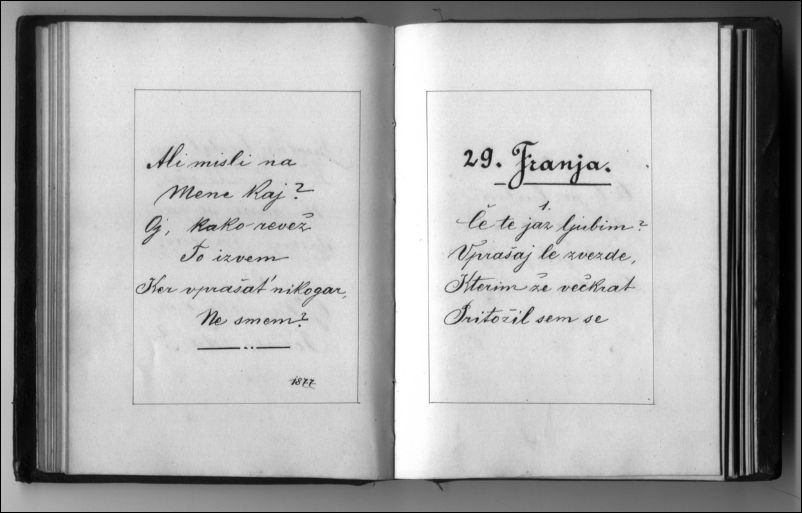 Ali misli na
Mene kaj?
Oj, kako revež
To izvem
Ker vprašat' nikogar,
Ne smem?
1877
29. Franja.
1.
Če te jaz ljubim?
Vprašaj le zvezde,
Kterim že večkrat
Pritožil sem se